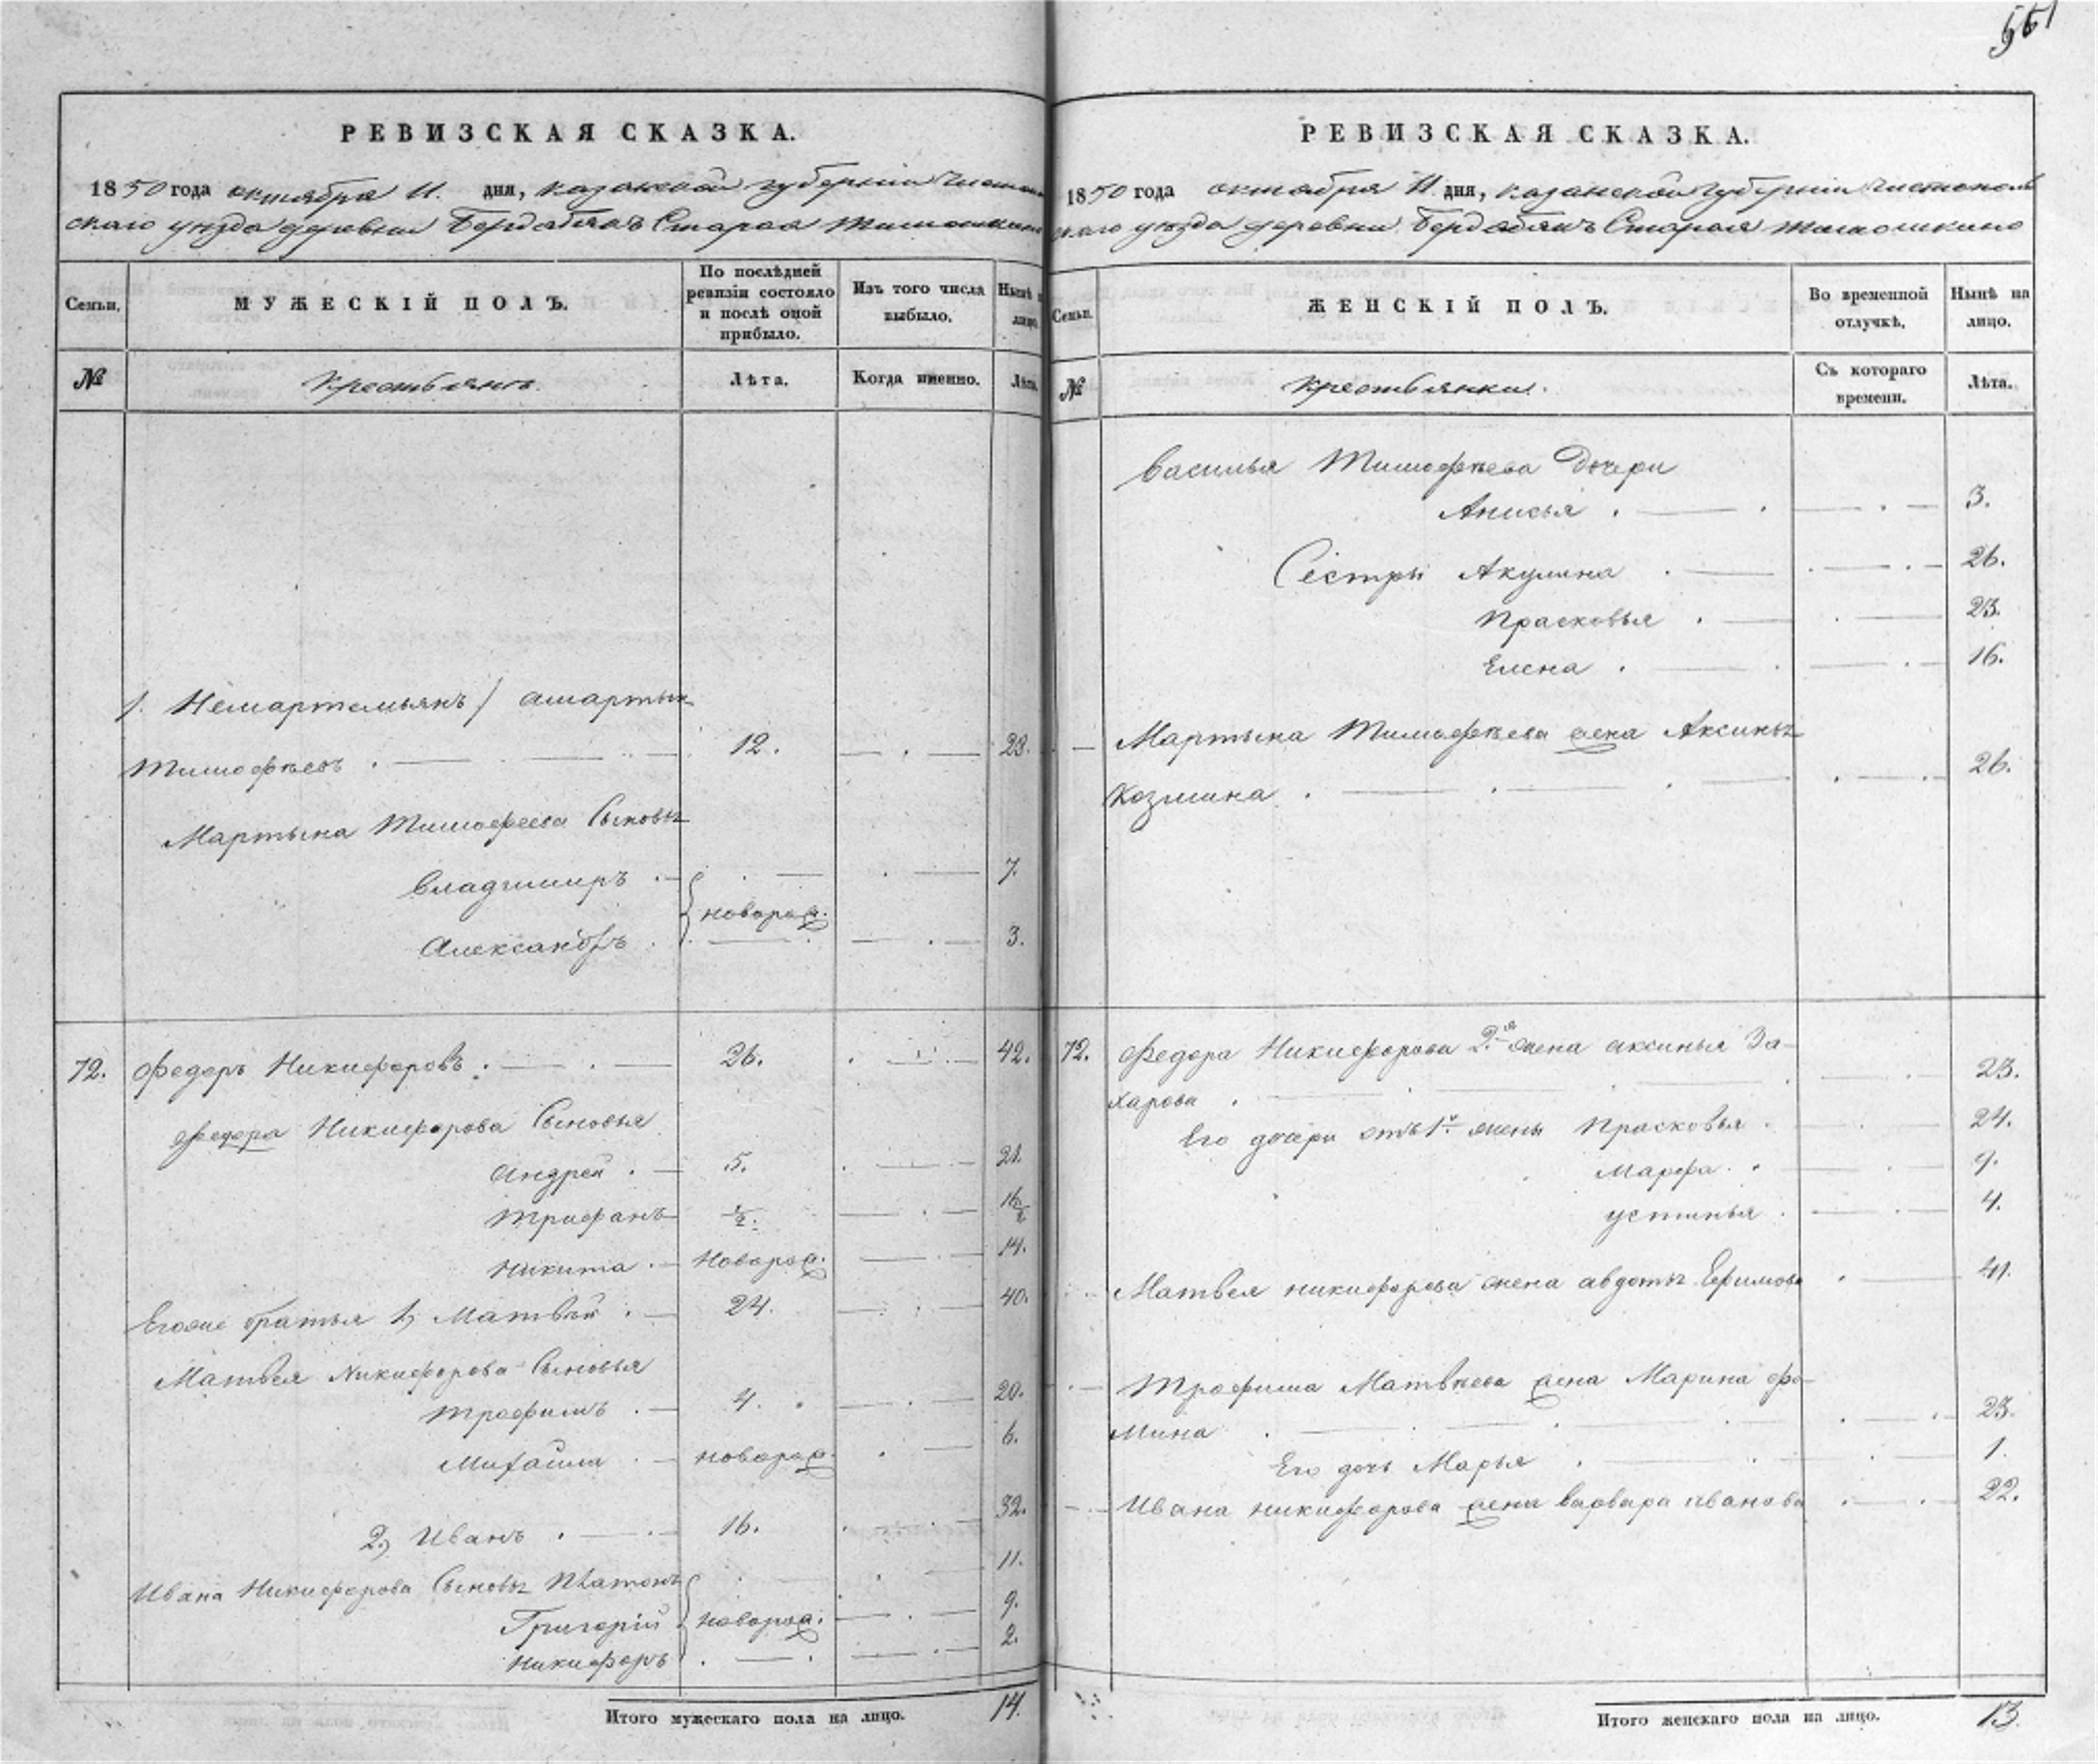 551
РЕВИЗСКАЯ СКАЗКА.
1850 года октября 11. дня, Казанской губернии Чистополь
скаго уезда деревни Бердебякъ Старая Тимошкино
Семьи.
МУЖЕСКІЙ ПОЛЪ.
По послѣдней ревизіи состояло и послѣ оной прибыло.
Изъ того числа выбыло.
Нынѣ на лицо.
№
Крестьянъ.
Лѣта.
Когда именно.
Лѣта.
1. Немартемьянъ / амартын
Тимофѣевъ . 12. 28.
Мартына Тимофеева Сыновья
Владимиръ . 7.
новорож.
Александръ . 3.
72. Федоръ Никифоровъ . 26. 42.
Федора Никифорова Сыновья
Андрей . 5. 21.
Трифанъ 1/2. 16 1/2
Никита . Новорож. 14.
Егоже братья 1, Матвѣй . 24. 40.
Матвея Никифорова Сыновья
Трофимъ . 4. 20.
Михаила . новорож. 6.
2, Иванъ . 16. 32.
Ивана Никифорова Сыновья Платонъ 11.
Григорій новорож. 9.
Никифоръ 2.
Итого мужескаго пола на лицо. 14.
РЕВИЗСКАЯ СКАЗКА.
1850 года октября 11. дня, Казанской губерніи Чистополь
скаго уезда деревни Бердебякъ Старая Тимошкино
Семьи.
ЖЕНСКІЙ ПОЛЪ.
Во временной отлучкѣ.
Нынѣ на лицо.
№
Крестьянки.
Съ котораго времени.
Лѣта.
Василья Тимофѣева Дочери
Анисья . 3.
Сестры Акулина . 26.
Прасковья . 23.
Елена . 16.
Мартына Тимофѣева жена Аксинья
Козмина . 26.
72. Федора Никифорова 2.я жена аксинья За-
харова . 23.
Его дочери отъ 1й жены Прасковья . 24.
Марфа . 9.
устинья . 4.
Матвея никифорова жена авдотья Ефимова . 41.
Трофима Матвѣева жена Марина фо-
мина . 23.
Его дочь Марья . 1.
Ивана никифорова жена варвара иванова . 22.
Итого женскаго пола на лицо. 13.